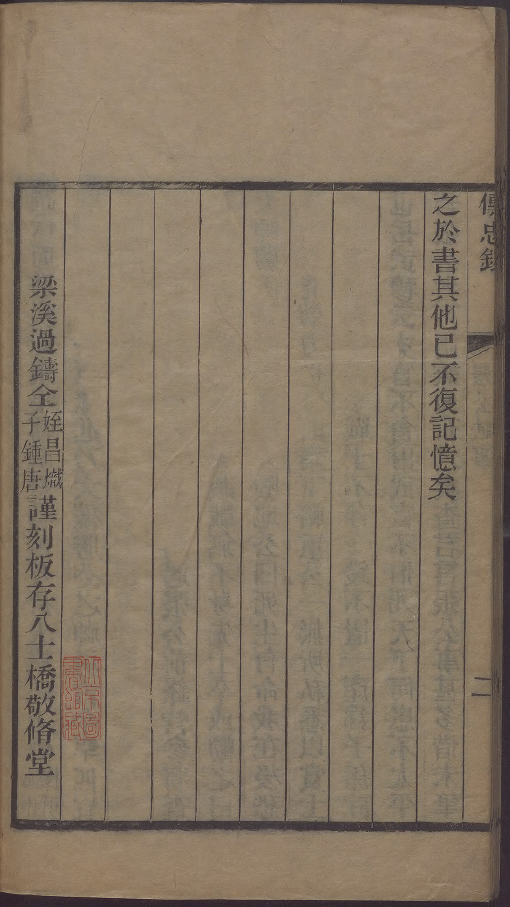 傳忠錄
二
之於書其他已不復記憶矣
梁溪過鑄仝姪昌熾子鍾唐謹刻板存八士橋敬脩堂